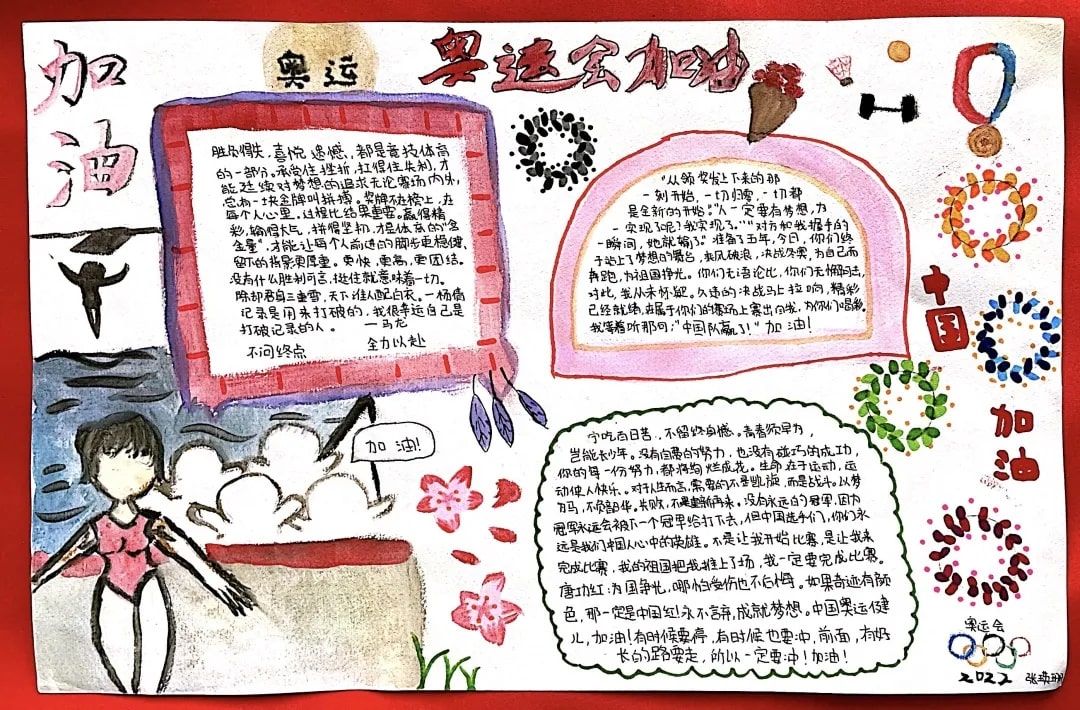 加油
奥运
奥运会加油
胜负得失,喜悦遗憾,都是竞技体育
的一部分。承受住挫折,扛得住失利,才
能延续对梦想的追求无论赛场内外,
总有一块金牌叫拼搏。奖牌不在榜上,在
每个人心里。过程比结果重要。赢得精
彩,输得大气,拼得坚韧,才是体育的“含
金量”,才能让每个人前进的脚步更稳健、
留下的背影更厚重。更快,更高,更团结。
没有什么胜利可言,挺住就意味着一切。
除却君身三重雪,天下谁人配白衣。一杨倩
记录是用来打破的,我很幸运自己是
打破记录的人。 —马龙
不问终点 全力以赴
“从领奖发上下来的那
一刻开始,一切归零,一切都
是全新的开始。”“人一定要有梦想,万
一实现了呢?我实现了。”“对方和我握手的
一瞬间,她就输了。”准备了五年,今日,你们终
于站上了梦想的舞台,乘风破浪,决战冬赛,为自己而
再跑,为祖国挣光。你们无语论比,你们无懈可击,
对此,我从未怀疑。久违的决战马上拉响,精彩
已经就绪,在属于你们的赛场上赛出向我,为你们喝彩。
我等着听那句:“中国队赢了!”加油!
中国
加油
加油!
宁吃百日苦,不留终身憾。青春须早为,
岂能长少年。没有白费的努力,也没有碰巧的成功,
你的每一份努力,都将绚烂成花。生命在于运动,运
动使人快乐。对于人生而言,需要的不是凯旋,而是战斗。以梦
为马,不负韶华。失败,不过是重新再来。没有永远的冠军,因为
冠军永远会被下一个冠军给打下去,但中国选手们,你们永
远是我们中国人心中的英雄。不是让我开始比赛,是让我来
完成比赛,我的祖国把我推上了场,我一定要完成比赛。
唐功红:为国争光,哪怕受伤也不后悔。如果奇迹有颜
色,那一定是中国红!永不言弃,成就梦想。中国奥运健
儿,加油!有时候要停,有时候也要冲,前面,有好
长的路要走,所以一定要冲!加油!
奥运会
2022 张瑛珊